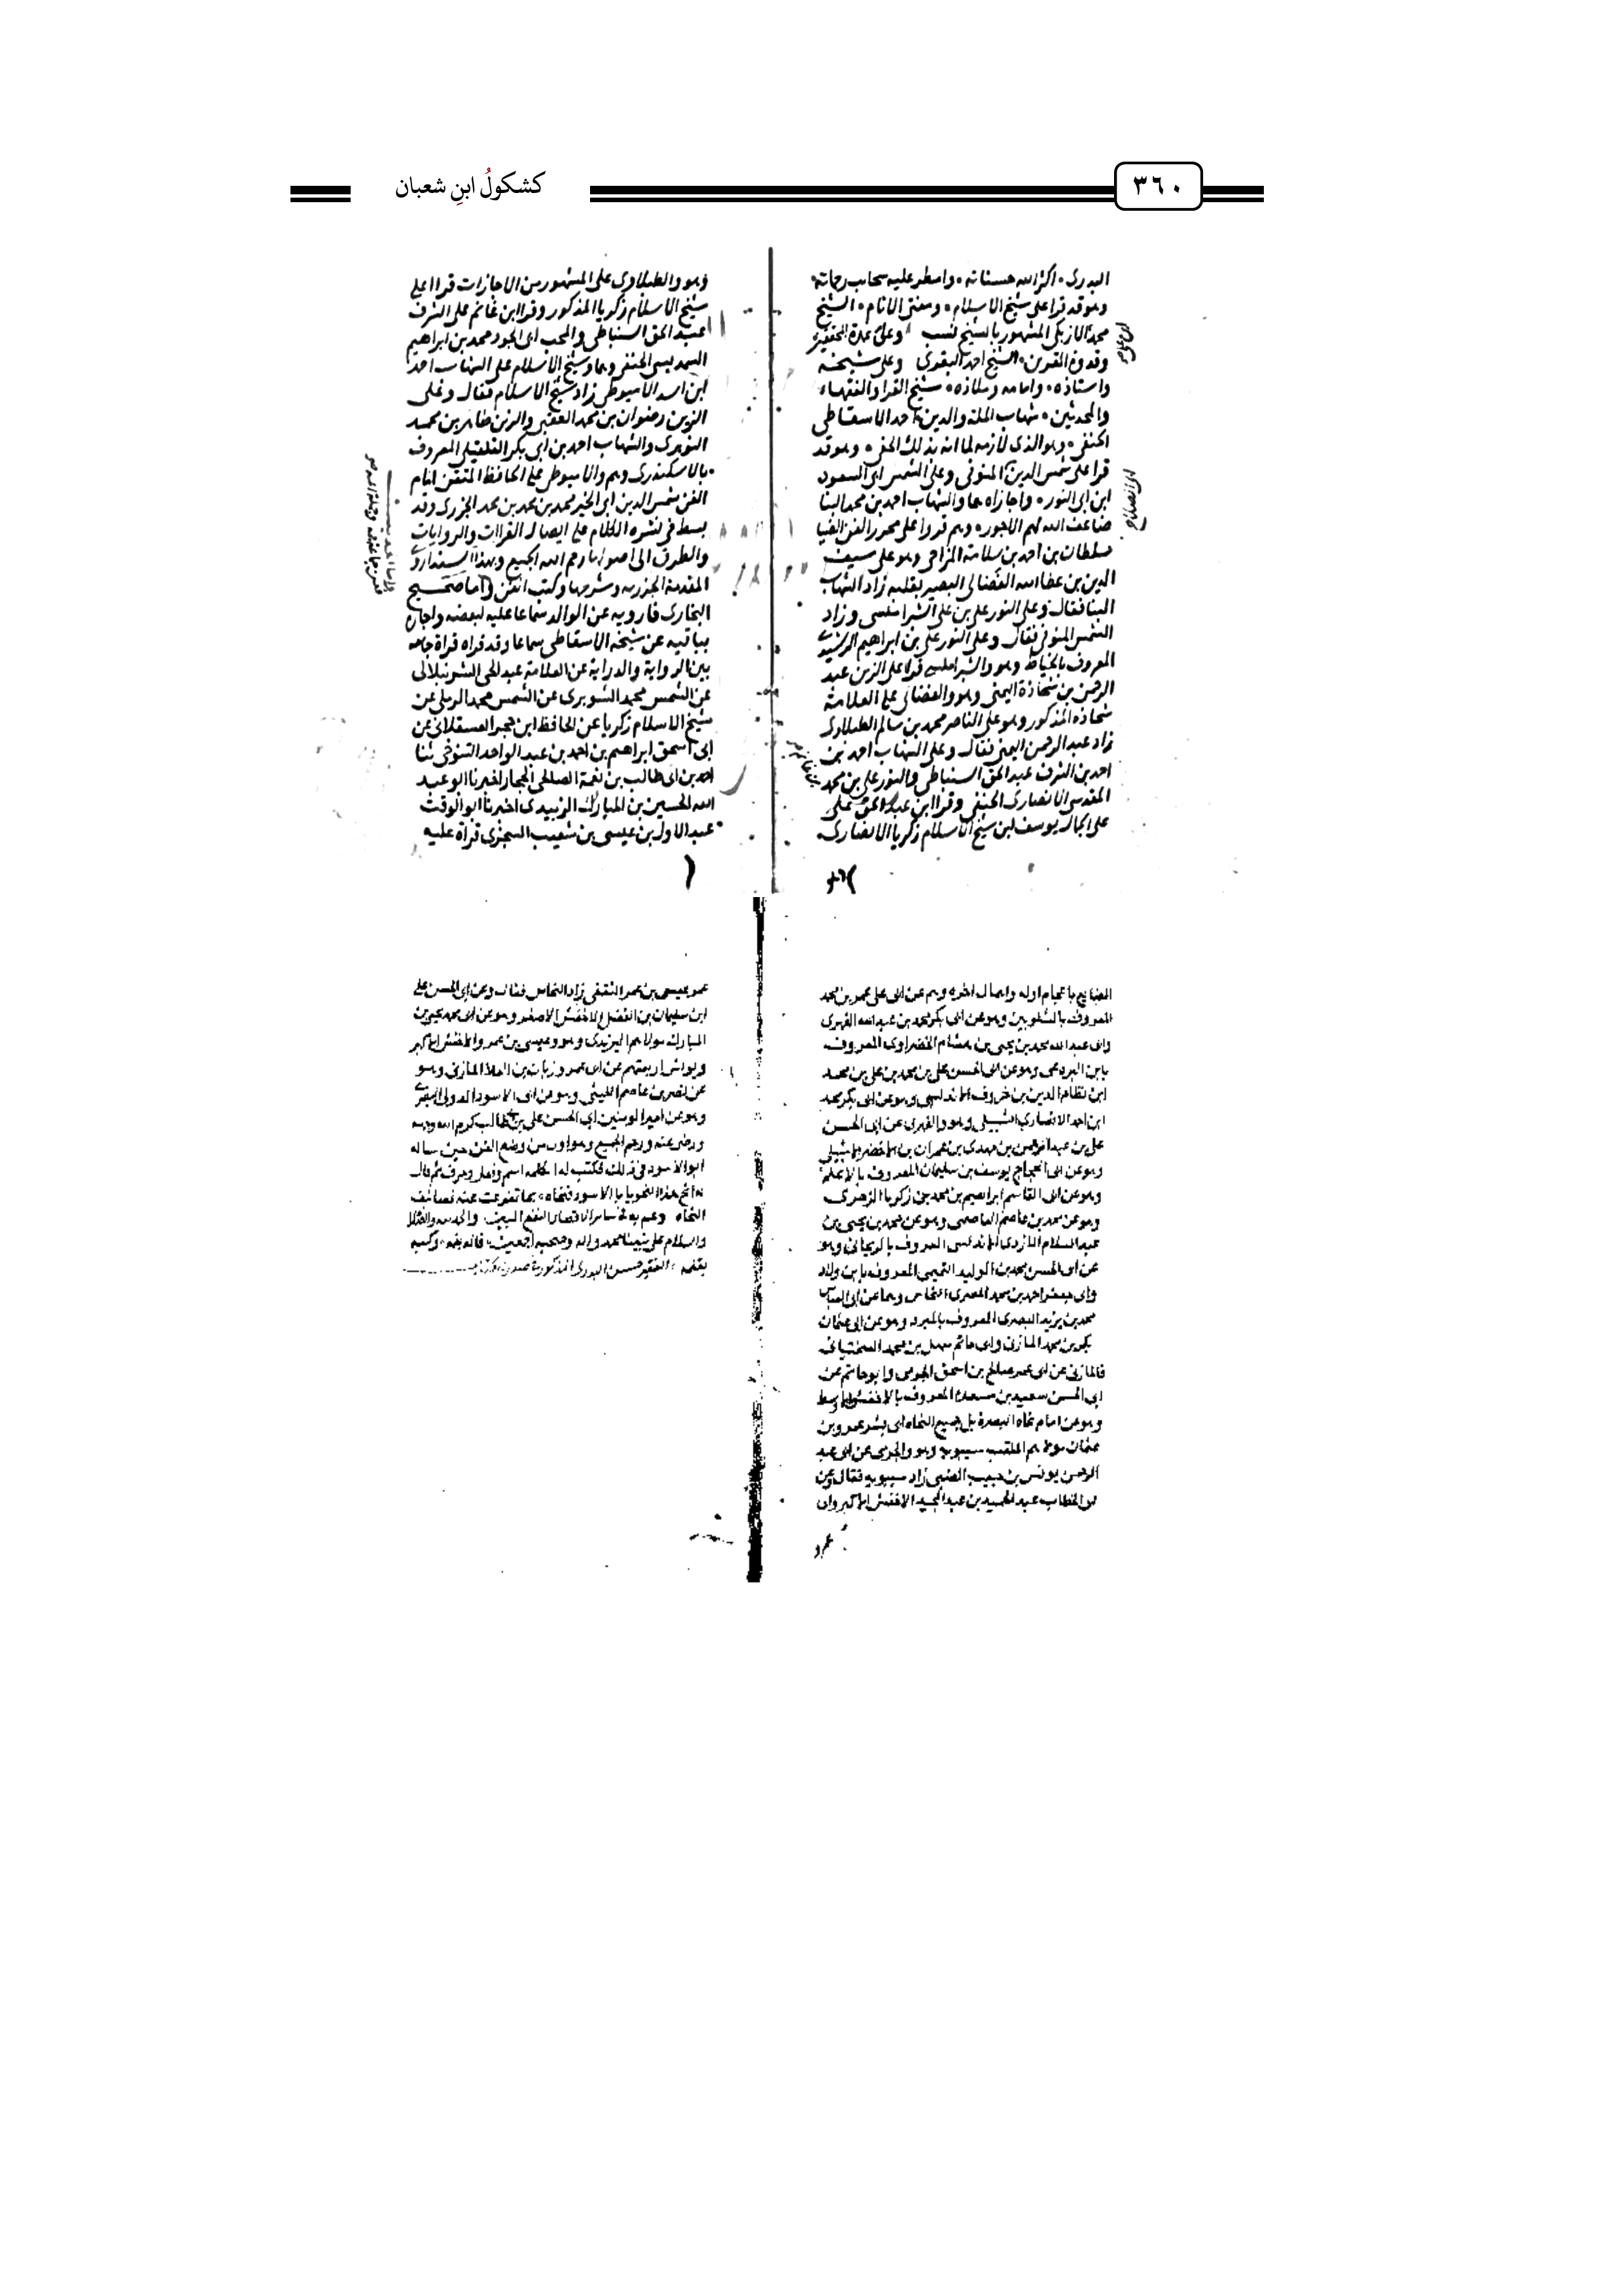 ٣٦٠
كشكولُ ابنِ شعبان
البدرى اكثر الله حسناته واسطر عليه سحاب رحماته
وهو قد قرا على شيخ الاسلام ومفتى الانام الشيخ
محمد الازبكى المشهور بالشيخ نسب وعلى عمدة المحققين
وقدوة المقرين الشيخ احمد البقرى وعلى شيخه
واستاذه وامامه وملاذه شيخ القرا والفقهاء
والمحدثين شهاب الملة والدين احمد الاسقاطى
الحنفى وهو الذى لازمه لما انه بذلك الحفى وهو قد
قرا على شمس الدين المنوفى وعلى الشمس ابى السعود
ابن ابى النور واجازاه هما والشهاب احمد بن محمد البنا
ضاعف الله لهم الاجور وهم قروا على محرر الفن الضيا
سلطان بن احمد بن سلامة المزاحى وهو على سيف
الدين بن عطا الله الفضالى البصير بقلبه زاد الشهاب
البنا فقال وعلى النور على بن على الشبراملسى وزاد
الشمس المنوفى فقال وعلى النور على بن ابراهيم الرشيدى
المعروف بالخياط وهو والشبراملسى قرا على الزين عبد
الرحمن بن شحاذة اليمنى وهو والفضالى على العلامة
شحاذه المذكور وهو على الناصر محمد بن سالم الطبلاوى
زاد عبد الرحمن اليمنى فقال وعلى الشهاب احمد بن
احمد بن الشرف عبد الحق السنباطى والنور على بن محمد
المقدسى الانصارى الحنفى وقرا ابن عبد الحق على
على الجمال يوسف ابن شيخ الاسلام زكريا الانصارى
وهو والطبلاوى على المشهور من الاجازات قرا على
شيخ الاسلام زكريا المذكور وقرا ابن غانم على الشرف
عبد الحق السنباطى والمحب ابى الجود محمد بن ابراهيم
السمديسى الحنفى وهما وشيخ الاسلام على الشهاب احمد
ابن اسد الاميوطى زاد شيخ الاسلام فقال وعلى
الزين رضوان بن محمد العقبى والزين طاهر بن محمد
النويرى والشهاب احمد بن ابى بكر القلقيلى المعروف
بالاسكندرى وهم والاميوطى على الحافظ المتقن امام
الفن شمس الدين ابى الخير محمد بن محمد بن محمد الجزرى وقد
بسط فى نشره الكلام على ايصال القراات والروايات
والطرق الى اصولها رحم الله الجميع وبهذا السند اروى
المقدمة الجزريه وشرحها وكتب الفن واما صحيح
البخارى فارويه عن الوالد سماعا عليه لبعضه واجازه
بباقيه عن شيخه الاسقاطى سماعا وقد قراه قراة جامعه
بين الرواية والدراية عن العلامة عبد الحى الشرنبلالى
عن الشمس محمد الشوبرى عن الشمس محمد الرملى عن
شيخ الاسلام زكريا عن الحافظ ابن حجر العسقلانى عن
ابى اسحق ابراهيم بن احمد بن عبد الواحد التنوخى ثنا
احمد بن ابى طالب بن نعمة الصالحى الحجار اخبرنا ابو عبد
الله الحسين بن المبارك الزبيدى اخبرنا ابو الوقت
عبد الاول بن عيسى بن شعيب السجزى قراة عليه
الضايع باعجام اوله واهمال اخره وهم عن ابى على عمر بن محمد
المعروف بالشلوبين وهو عن ابى بكر محمد بن عبد الله الفهرى
وابى عبد الله محمد بن يحيى بن هشام الخضراوى المعروف
بابن البردعى وهو عن ابى الحسن على بن محمد بن على بن محمد
ابن نظام الدين بن خروف الاندلسى وهو عن ابى بكر محمد
ابن احمد الانصارى اشبيلى وهو والفهرى عن ابى الحسن
على بن عبد الرحمن بن مهدى بن عمران بن الاخضر الاشبيلى
وهو عن ابى الحجاج يوسف بن سليمان المعروف بالاعلم
وهو عن ابى القاسم ابراهيم بن محمد بن زكريا الزهرى
وهو عن محمد بن عاصم العاصمى وهو عن محمد بن يحيى بن
عبد السلام الازدى الاندلسى المعروف بالرباحى وهو
عن ابى الحسن محمد بن الوليد التميمى المعروف بابن ولاد
وابى جعفر احمد بن محمد المصرى النحاس وهما عن ابى العباس
محمد بن يزيد البصرى المعروف بالمبرد وهو عن ابى عثمان
بكر بن محمد المازنى وابى حاتم سهل بن محمد السختيانى
فالمازنى عن ابى عمر صالح بن اسحق الجرمى وابو حاتم عن
ابى الحسن سعيد بن مسعده المعروف بالاخفش الاوسط
وهو عن امام نحاه البصرة بل جميع النحاه ابى بشر عمرو بن
عثمان مولاهم الملقب سيبويه وهو والجرمى عن ابى عبد
الرحمن يونس بن حبيب الضبى زاد سيبويه فقال وعن
ابى الخطاب عبد الحميد بن عبد المجيد الاخفش الاكبر وابى
عمر عيسى بن عمر الثقفى زاد النحاس فقال وعن ابى الحسن على
ابن سليمان بن الفضل الاخفش الاصغر وهو عن ابى محمد يحيى بن
المبارك مولاهم اليزيدى وهو وعيسى بن عمر والاخفش الاكبر
ويونس اربعتهم عن ابى عمرو زبان بن العلا المازنى وهو
عن نصر بن عاصم الليثى وهو عن ابى الاسود الدولى البصرى
وهو عن امير المومنين ابى الحسن على بن ابى طالب كرم الله وجهه
ورضى عنه ورحم الجميع وهو اول من وضع الفن حين ساله
ابو الاسود فى ذلك فكتب له الكلمه اسم وفعل وحرف ثم قال
له انح هذا النحو يا ابا الاسود فنحاه بما تفرعت عنه تصانيف
النحاه وعم به فى ساير الاقطار النفع والحمد لله والصلاة
والسلام على نبينا محمد واله وصحبه اجمعين قاله بفمه وكتبه
بقلمه الفقير حسن البدرى المذكور